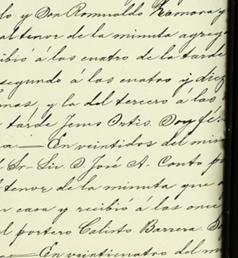 lo y Don Romualdo Zamora y
al tenor de la minuta agrega
cibió á las cuatro de la tarde
segundo á las cuatro y diez
nas, y la del tercero á las
tarde Jesus Ortis. Doy fé.
a— En veintidos del mis
Sr. Lic. D. José A. Couto
tenor de la minuta que
casa y recibió á las once
l portero Calisto Barrera.
En veinticuatro del m